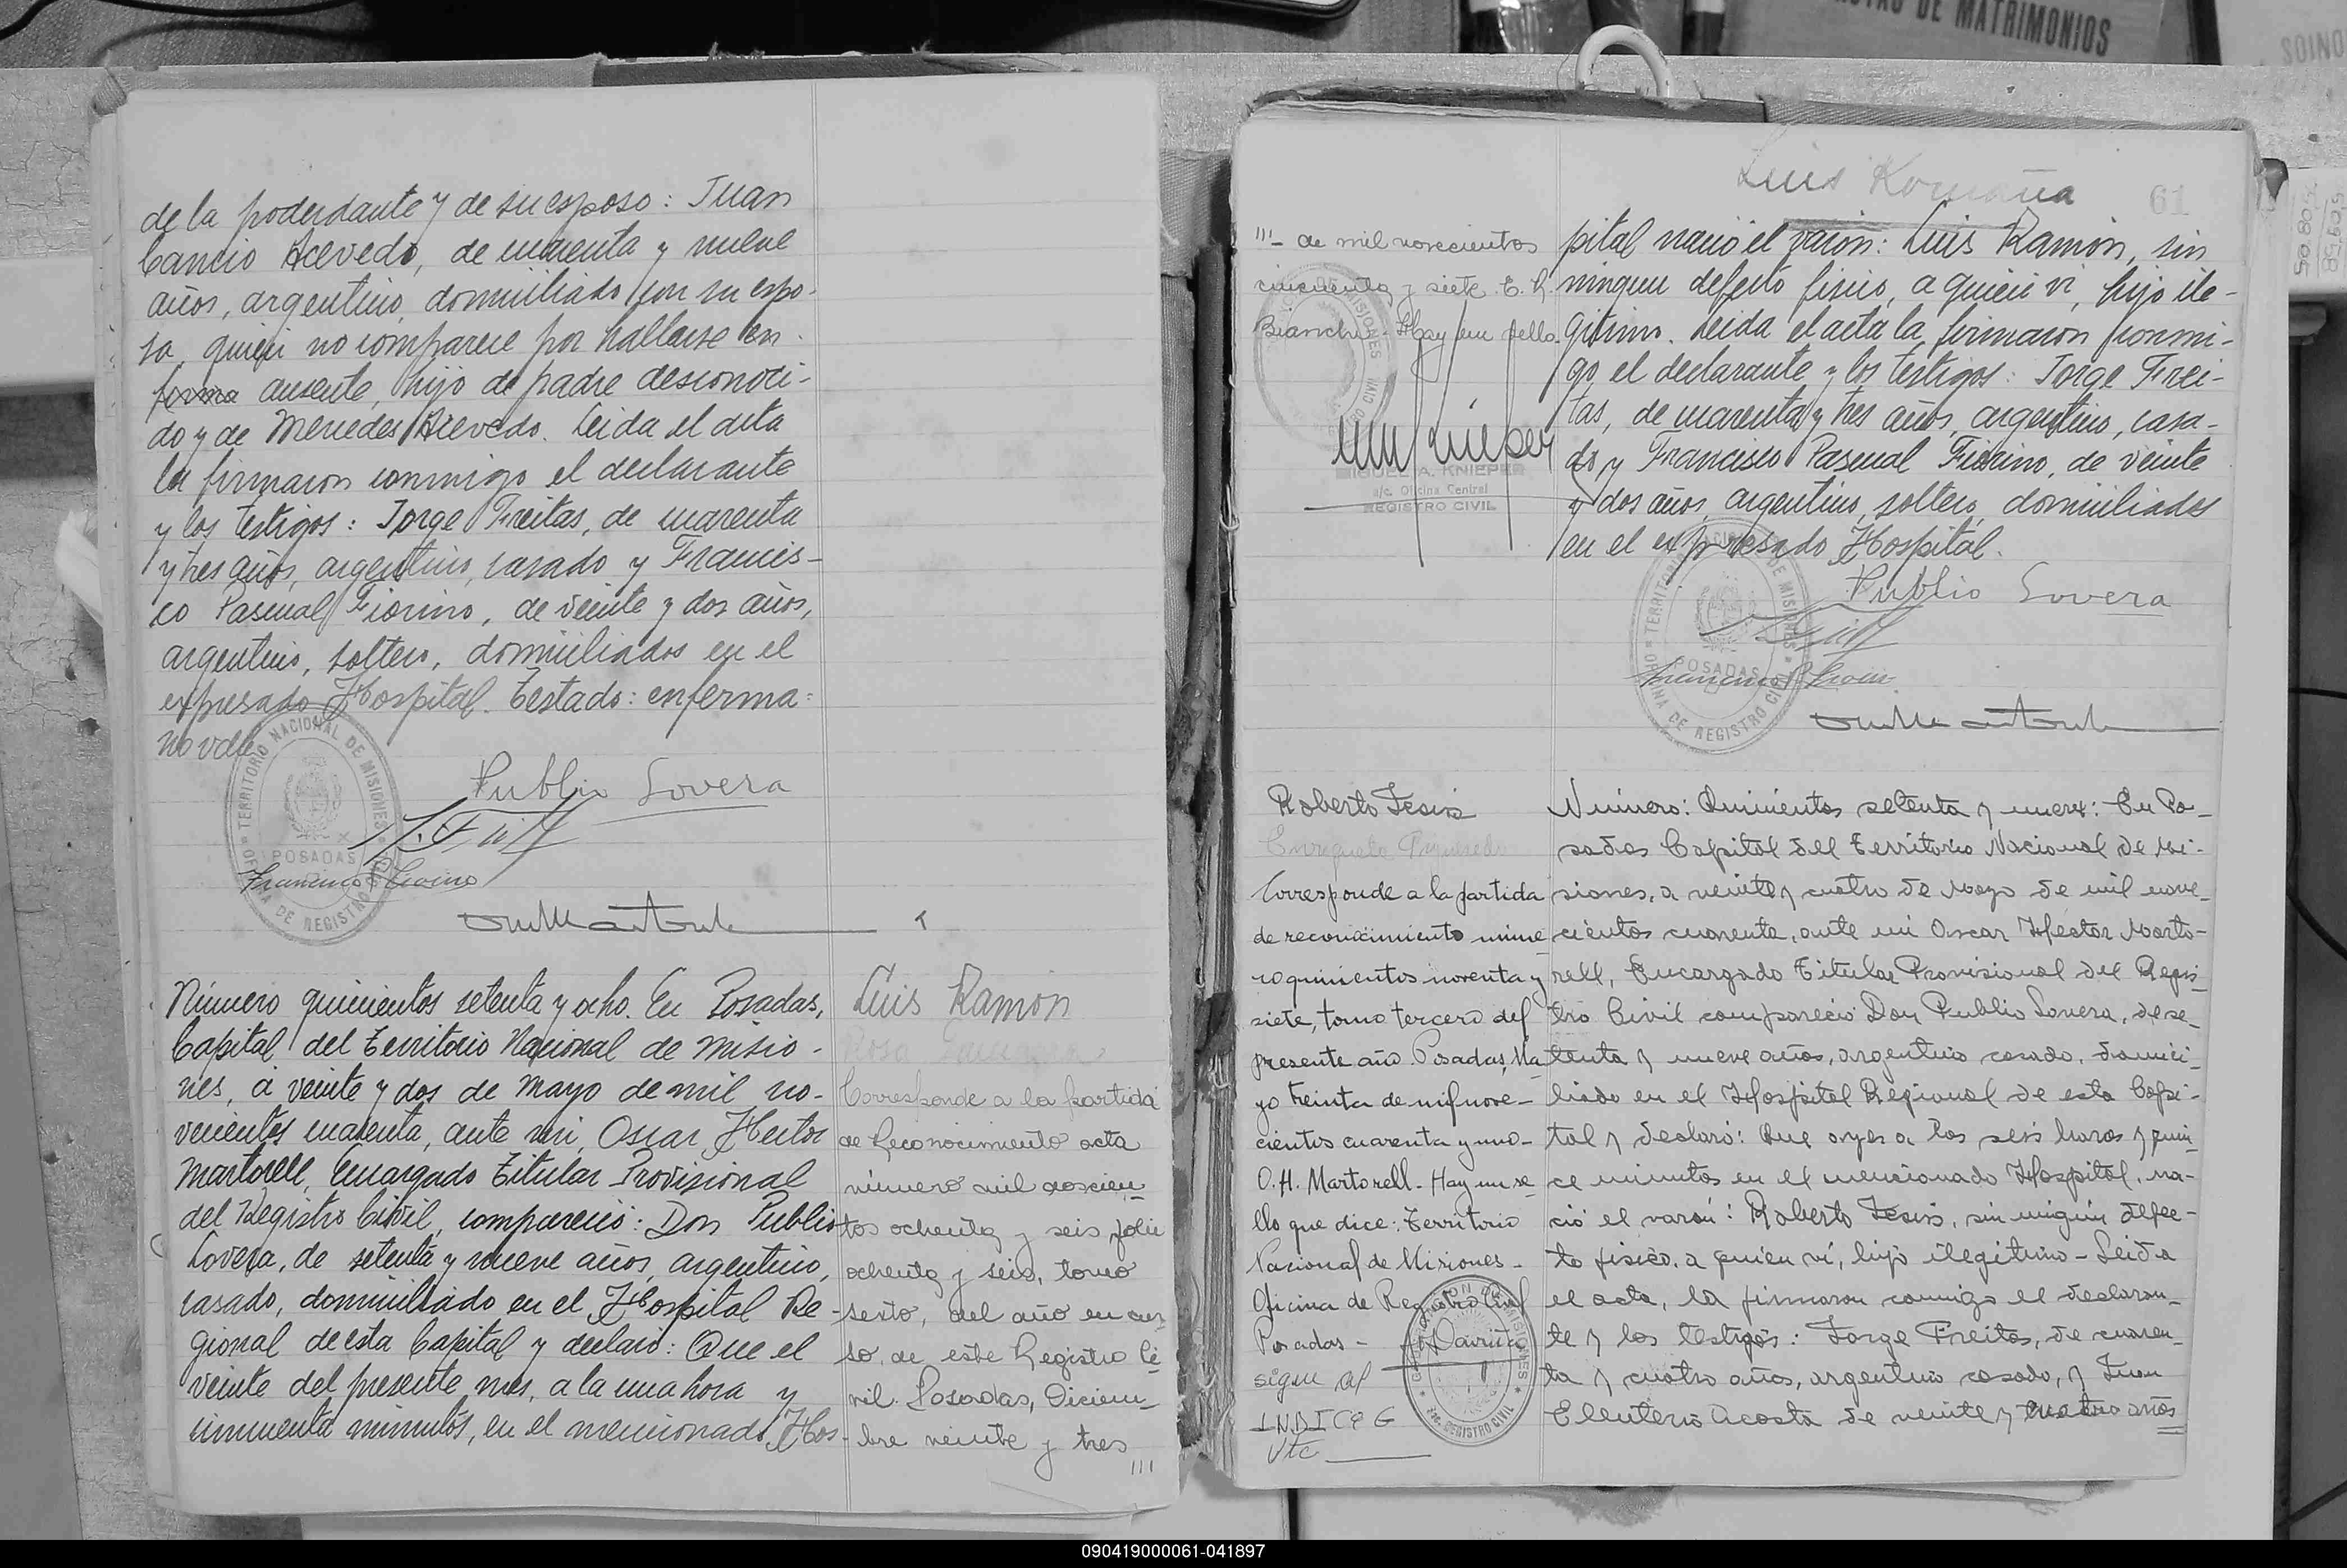 ACTAS DE MATRIMONIOS
de la poderdante y de su esposo: Juan
Cancio Acevedo, de cuarenta y nueve
años, argentino, domiciliado con su espo-
sa, quien no comparece por hallarse en-
ferma ausente, hijo de padre desconoci-
do y de Mercedes Acevedo. Leida el acta
la firmaron conmigo el declarante
y los testigos: Jorge Freitas, de cuarenta
y tres años, argentino, casado y Francis-
co Pascual Fiorino, de veinte y dos años,
argentino, soltero, domiciliados en el
expresado Hospital. Testado: enferma:
no vale
TERRITORIO NACIONAL DE MISIONES
POSADAS
OFICINA DE REGISTRO CIVIL
Publio Lovera
Número quinientos setenta y ocho. En Posadas,
Capital del Territorio Nacional de Misio-
nes, a veinte y dos de Mayo de mil no-
vecientos cuarenta, ante mi, Oscar Hector
Martorell, Encargado Titular Provisional
del Registro Civil, compareció: Don Publio
Lovera, de setenta y nueve años, argentino,
casado, domiciliado en el Hospital Re-
gional de esta Capital y declaró: Que el
veinte del presente mes, a la una hora y
cincuenta minutos, en el mencionado Hos-
Luis Ramon
Rosa
Corresponde a la partida
de Reconocimiento acta
número mil doscien-
tos ochenta y seis folio
ochenta y seis, tomo
sexto, del año en cur-
so, de este Registro Ci
vil. Posadas, Diciem-
bre veinte y tres
///
Luis Romaña
61
///- de mil novecientos
cincuenta y siete. E. R.
Bianchi - Hay un sello.
MIGUEL A. KNIEPER
a/c. Oficina Central
REGISTRO CIVIL
pital nació el varón: Luis Ramón, sin
ningun defecto fisico, a quien vi, hijo ile-
gitimo. Leida el acta la firmaron conmi-
go el declarante y los testigos: Jorge Frei-
tas, de cuarenta y tres años, argentino, casa-
do y Francisco Pascual Fiorino, de veinte
y dos años, argentino, soltero, domiciliados
en el expresado Hospital.
Publio Lovera
TERRITORIO NACIONAL DE MISIONES
POSADAS
OFICINA DE REGISTRO CIVIL
Roberto Jesús
Enriqueta
Corresponde a la partida
de reconocimiento núme
ro quinientos noventa y
siete, tomo tercero del
presente año. Posadas, Ma
yo treinta de mil nove-
cientos cuarenta y uno-
O. H. Martorell - Hay un se
llo que dice: Territorio
Nacional de Misiones -
Oficina de Registro Civil
Posadas -
sigue al
INDICE G
Vtc
Número: Quinientos setenta y nueve: En Po-
sadas Capital del Territorio Nacional de Mi-
siones, a veinte y cuatro de Mayo de mil nove
cientos cuarenta, ante mi Oscar Hector Marto-
rell, Encargado Titular Provisional del Regis-
tro Civil compareció Don Publio Lovera, de se-
tenta y nueve años, argentino casado, domici-
liado en el Hospital Regional de esta Capi-
tal y declaró: Que ayer a las seis horas y quin
ce minutos en el mencionado Hospital, na-
ció el varón: Roberto Jesús, sin ningún defec-
to fisico, a quien vi, hijo ilegitimo - Leida
el acta, la firmaron conmigo el declaran-
te y los testigos: Jorge Freitas, de cuaren-
ta y cuatro años, argentino casado, y Juan
Eleuterio Acosta de veinte y cuatro años
090419000061-041897